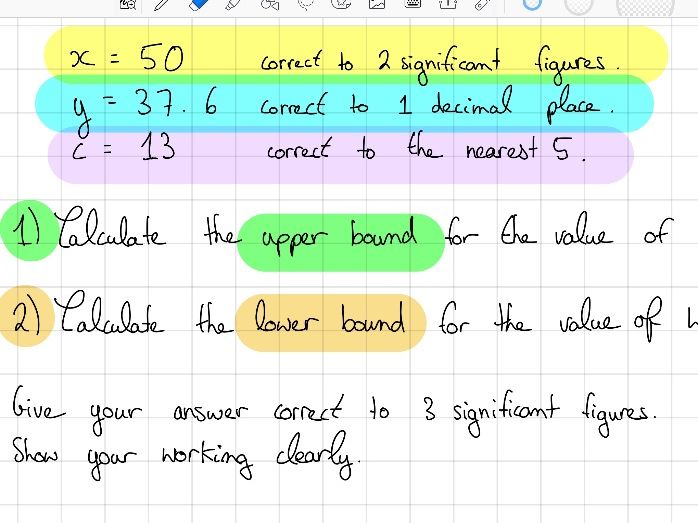 x = 50 correct to 2 significant figures.
y = 37.6 correct to 1 decimal place.
c = 13 correct to the nearest 5.
1) Calculate the upper bound for the value of
2) Calculate the lower bound for the value of
Give your answer correct to 3 significant figures.
Show your working clearly.